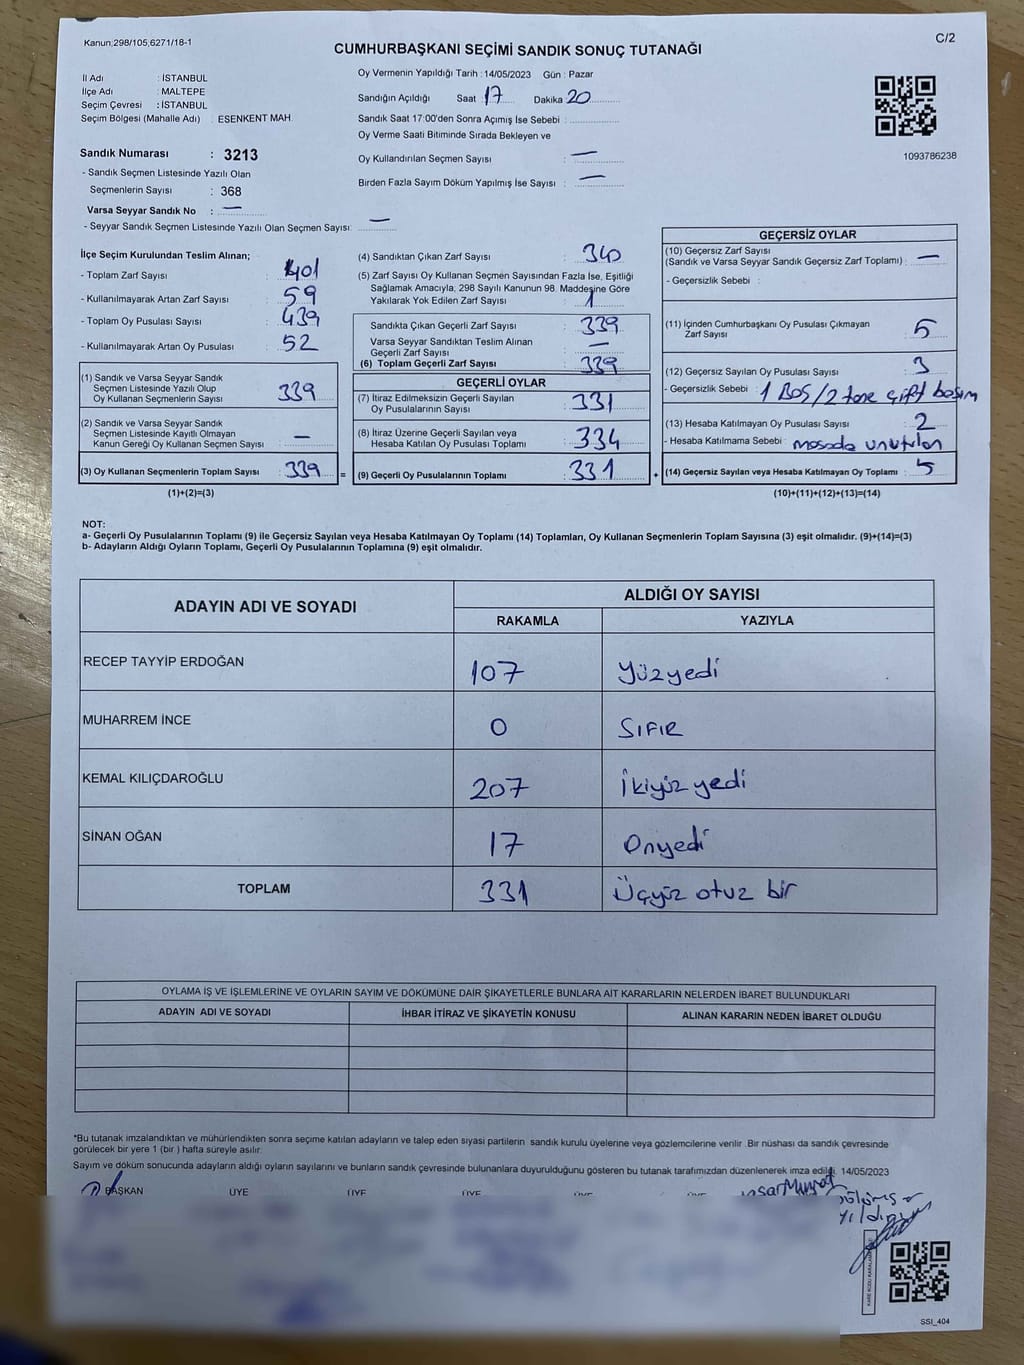 Kanun;298/105,6271/18-1
C/2
CUMHURBAŞKANI SEÇİMİ SANDIK SONUÇ TUTANAĞI
İl Adı : İSTANBUL
İlçe Adı : MALTEPE
Seçim Çevresi : İSTANBUL
Seçim Bölgesi (Mahalle Adı) : ESENKENT MAH.
Sandık Numarası : 3213
- Sandık Seçmen Listesinde Yazılı Olan
Seçmenlerin Sayısı : 368
Varsa Seyyar Sandık No : —
- Seyyar Sandık Seçmen Listesinde Yazılı Olan Seçmen Sayısı: —
Oy Vermenin Yapıldığı Tarih : 14/05/2023 Gün : Pazar
Sandığın Açıldığı Saat 17 Dakika 20
Sandık Saat 17:00'den Sonra Açımış İse Sebebi :
Oy Verme Saati Bitiminde Sırada Bekleyen ve
Oy Kullandırılan Seçmen Sayısı : —
Birden Fazla Sayım Döküm Yapılmış İse Sayısı : —
1093786238
İlçe Seçim Kurulundan Teslim Alınan;
- Toplam Zarf Sayısı : 401
- Kullanılmayarak Artan Zarf Sayısı : 59
- Toplam Oy Pusulası Sayısı : 439
- Kullanılmayarak Artan Oy Pusulası : 52
(1) Sandık ve Varsa Seyyar Sandık
Seçmen Listesinde Yazılı Olup
Oy Kullanan Seçmenlerin Sayısı : 339
(2) Sandık ve Varsa Seyyar Sandık
Seçmen Listesinde Kayıtlı Olmayan
Kanun Gereği Oy Kullanan Seçmen Sayısı : —
(3) Oy Kullanan Seçmenlerin Toplam Sayısı : 339 =
(1)+(2)=(3)
(4) Sandıktan Çıkan Zarf Sayısı : 340
(5) Zarf Sayısı Oy Kullanan Seçmen Sayısından Fazla İse, Eşitliği
Sağlamak Amacıyla, 298 Sayılı Kanunun 98. Maddesine Göre
Yakılarak Yok Edilen Zarf Sayısı : 1
Sandıkta Çıkan Geçerli Zarf Sayısı : 339
Varsa Seyyar Sandıktan Teslim Alınan
Geçerli Zarf Sayısı : —
(6) Toplam Geçerli Zarf Sayısı : 339
GEÇERLİ OYLAR
(7) İtiraz Edilmeksizin Geçerli Sayılan
Oy Pusulalarının Sayısı : 331
(8) İtiraz Üzerine Geçerli Sayılan veya
Hesaba Katılan Oy Pusulası Toplamı : 334
(9) Geçerli Oy Pusulalarının Toplamı : 331 +
GEÇERSİZ OYLAR
(10) Geçersiz Zarf Sayısı
(Sandık ve Varsa Seyyar Sandık Geçersiz Zarf Toplamı) : —
- Geçersizlik Sebebi :
(11) İçinden Cumhurbaşkanı Oy Pusulası Çıkmayan
Zarf Sayısı : 5
(12) Geçersiz Sayılan Oy Pusulası Sayısı : 3
- Geçersizlik Sebebi : 1 Boş / 2 tane çift basım
(13) Hesaba Katılmayan Oy Pusulası Sayısı : 2
- Hesaba Katılmama Sebebi : masada unutulan
(14) Geçersiz Sayılan veya Hesaba Katılmayan Oy Toplamı : 5
(10)+(11)+(12)+(13)=(14)
NOT:
a- Geçerli Oy Pusulalarının Toplamı (9) ile Geçersiz Sayılan veya Hesaba Katılmayan Oy Toplamı (14) Toplamları, Oy Kullanan Seçmenlerin Toplam Sayısına (3) eşit olmalıdır. (9)+(14)=(3)
b- Adayların Aldığı Oyların Toplamı, Geçerli Oy Pusulalarının Toplamına (9) eşit olmalıdır.
ADAYIN ADI VE SOYADI
ALDIĞI OY SAYISI
RAKAMLA YAZIYLA
RECEP TAYYİP ERDOĞAN 107 Yüzyedi
MUHARREM İNCE 0 SIFIR
KEMAL KILIÇDAROĞLU 207 İkiyüz yedi
SİNAN OĞAN 17 Onyedi
TOPLAM 331 Üçyüz otuz bir
OYLAMA İŞ VE İŞLEMLERİNE VE OYLARIN SAYIM VE DÖKÜMÜNE DAİR ŞİKAYETLERLE BUNLARA AİT KARARLARIN NELERDEN İBARET BULUNDUKLARI
ADAYIN ADI VE SOYADI İHBAR İTİRAZ VE ŞİKAYETİN KONUSU ALINAN KARARIN NEDEN İBARET OLDUĞU
*Bu tutanak imzalandıktan ve mühürlendikten sonra seçime katılan adayların ve talep eden siyasi partilerin sandık kurulu üyelerine veya gözlemcilerine verilir. Bir nüshası da sandık çevresinde
görülecek bir yere 1 (bir ) hafta süreyle asılır.
Sayım ve döküm sonucunda adayların aldığı oyların sayılarını ve bunların sandık çevresinde bulunanlara duyurulduğunu gösteren bu tutanak tarafımızdan düzenlenerek imza edildi. 14/05/2023
BAŞKAN ÜYE ÜYE ÜYE ÜYE ÜYE
SSI_404